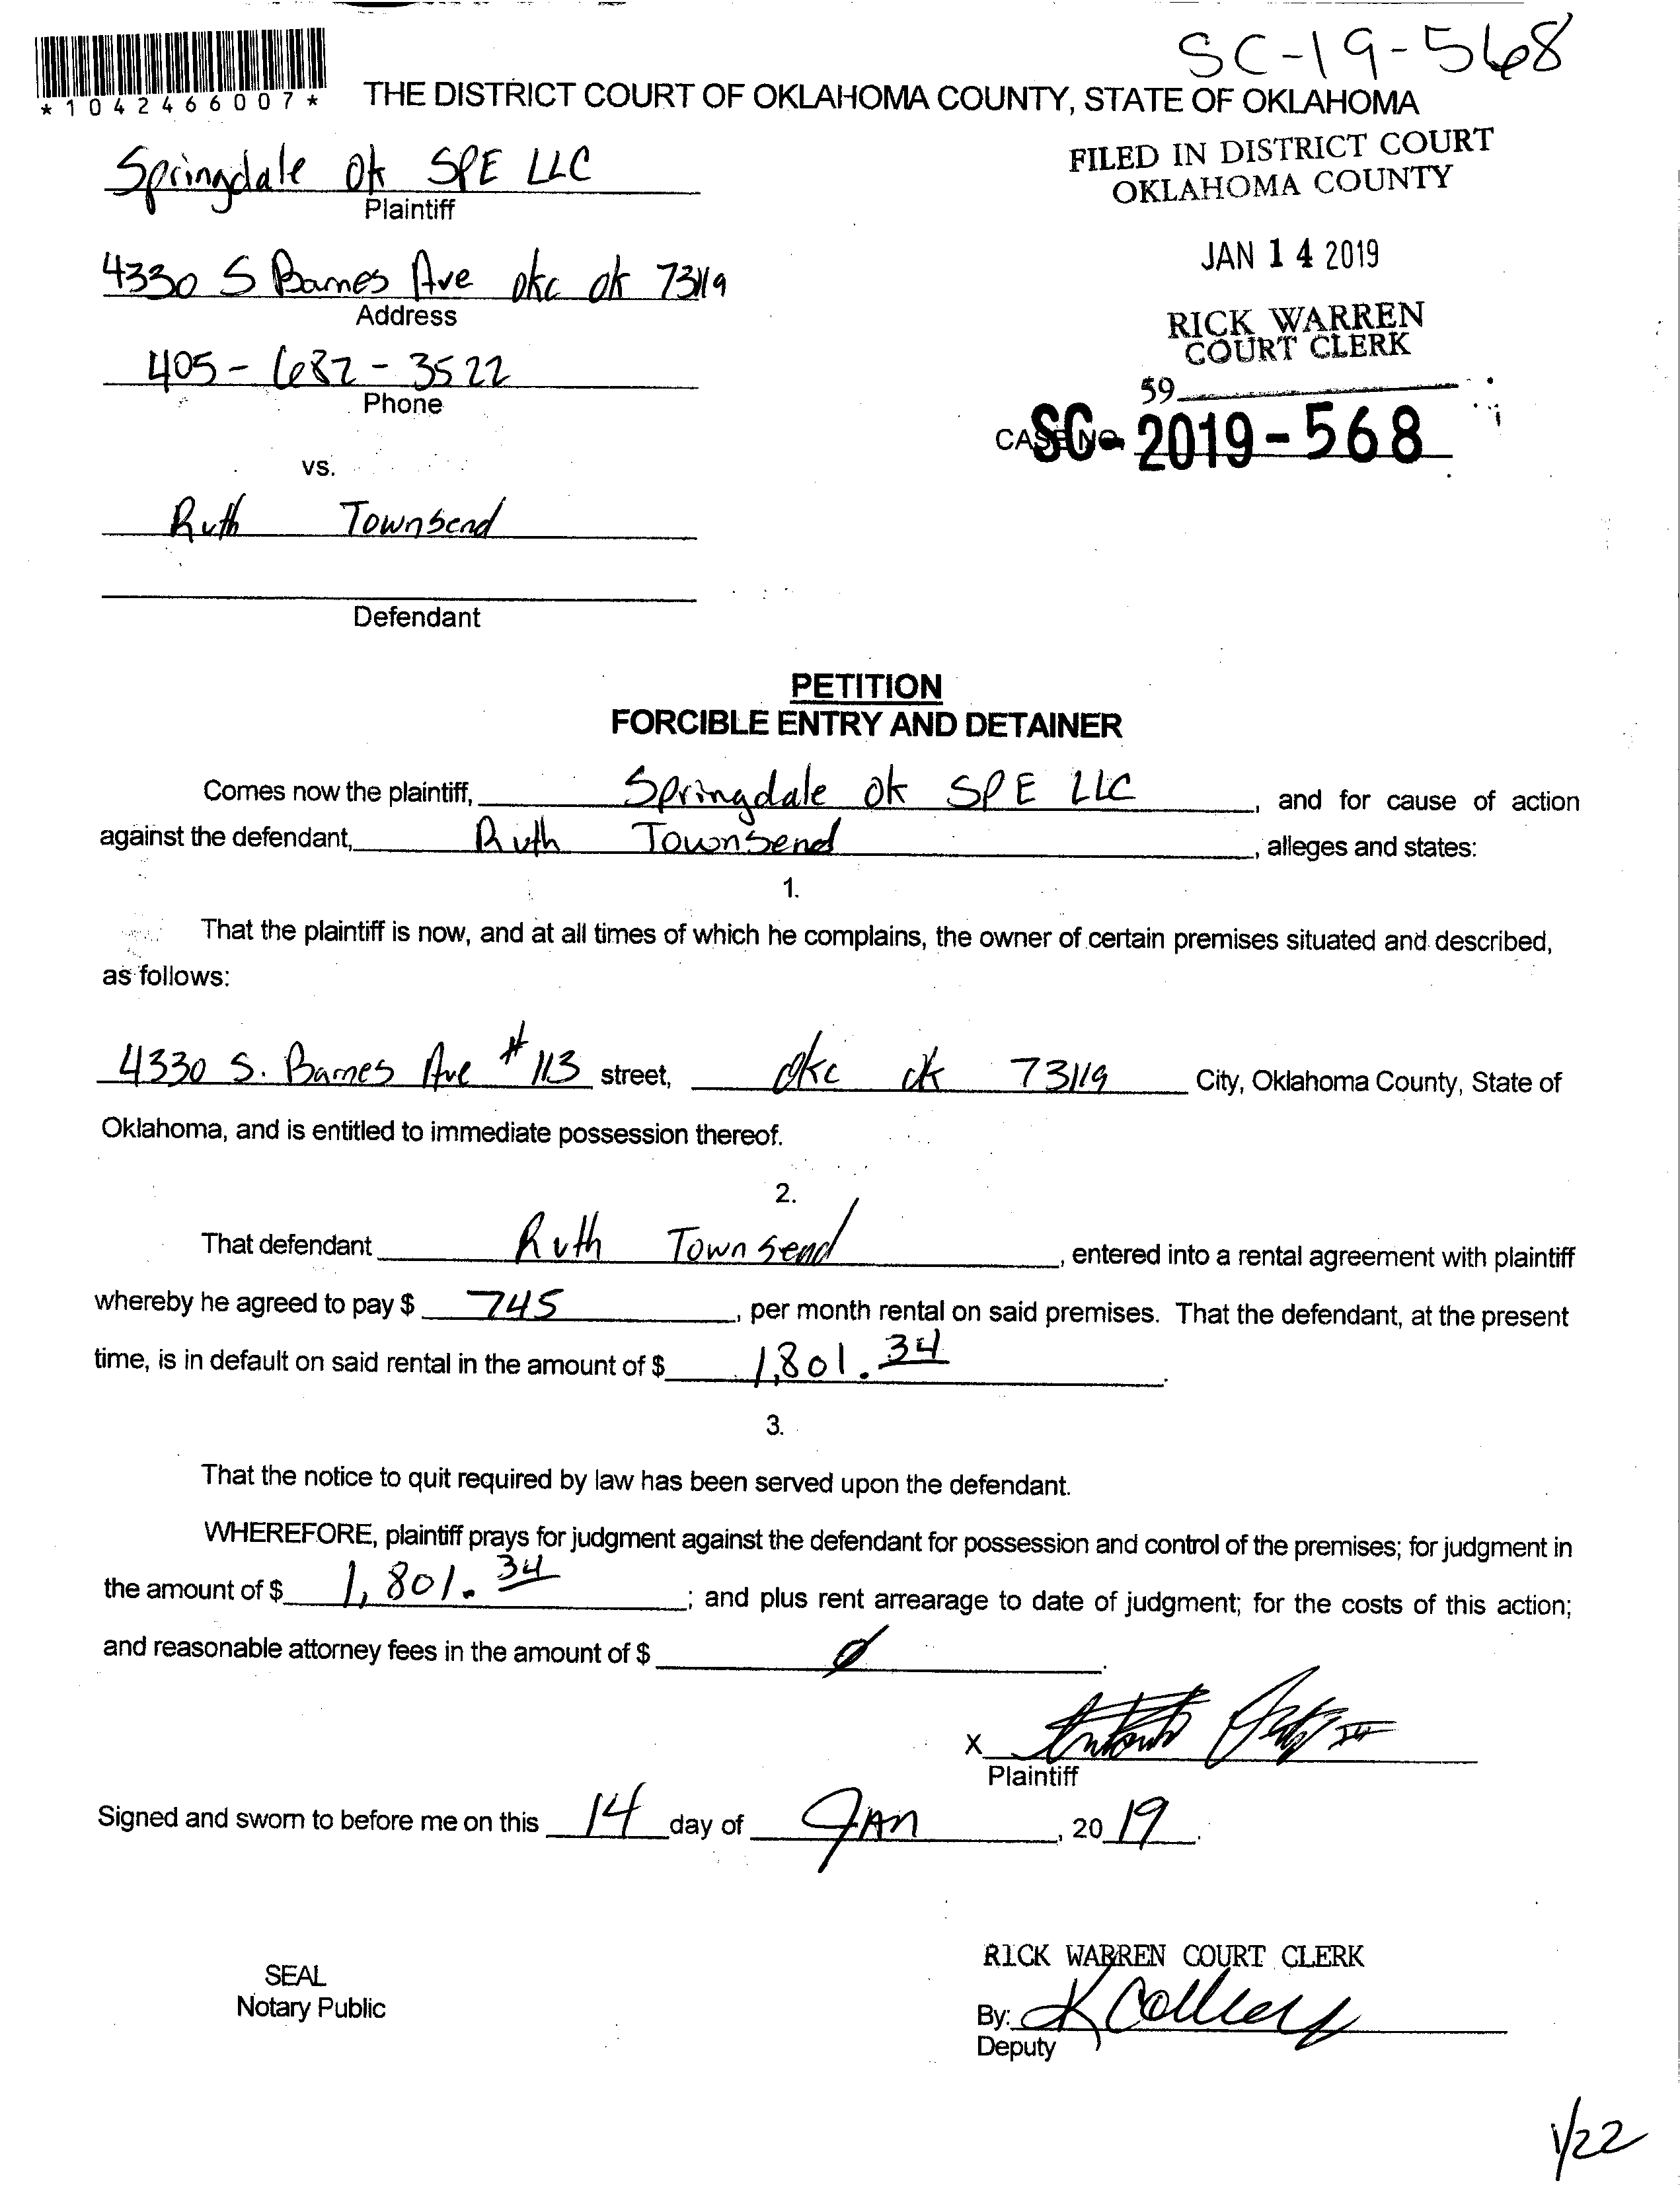 SC-19-568
*1042466007*
THE DISTRICT COURT OF OKLAHOMA COUNTY, STATE OF OKLAHOMA
Springdale Ok SPE LLC
Plaintiff
FILED IN DISTRICT COURT
OKLAHOMA COUNTY
4330 S Barnes Ave okc ok 73119
Address
JAN 14 2019
405-682-3522
Phone
RICK WARREN
COURT CLERK
59
CASE NO.
SC-2019-568
vs.
Ruth Townsend
Defendant
PETITION
FORCIBLE ENTRY AND DETAINER
Comes now the plaintiff, Springdale Ok SPE LLC, and for cause of action
against the defendant, Ruth Townsend, alleges and states:
1.
That the plaintiff is now, and at all times of which he complains, the owner of certain premises situated and described,
as follows:
4330 S. Barnes Ave #113 street, okc ok 73119 City, Oklahoma County, State of
Oklahoma, and is entitled to immediate possession thereof.
2.
That defendant Ruth Townsend, entered into a rental agreement with plaintiff
whereby he agreed to pay $ 745, per month rental on said premises. That the defendant, at the present
time, is in default on said rental in the amount of $ 1,801.34.
3.
That the notice to quit required by law has been served upon the defendant.
WHEREFORE, plaintiff prays for judgment against the defendant for possession and control of the premises; for judgment in
the amount of $ 1,801.34; and plus rent arrearage to date of judgment; for the costs of this action;
and reasonable attorney fees in the amount of $ ∅.
X
Plaintiff
Signed and sworn to before me on this 14 day of JAN, 2019.
SEAL
Notary Public
RICK WARREN COURT CLERK
By:
Deputy
1/22